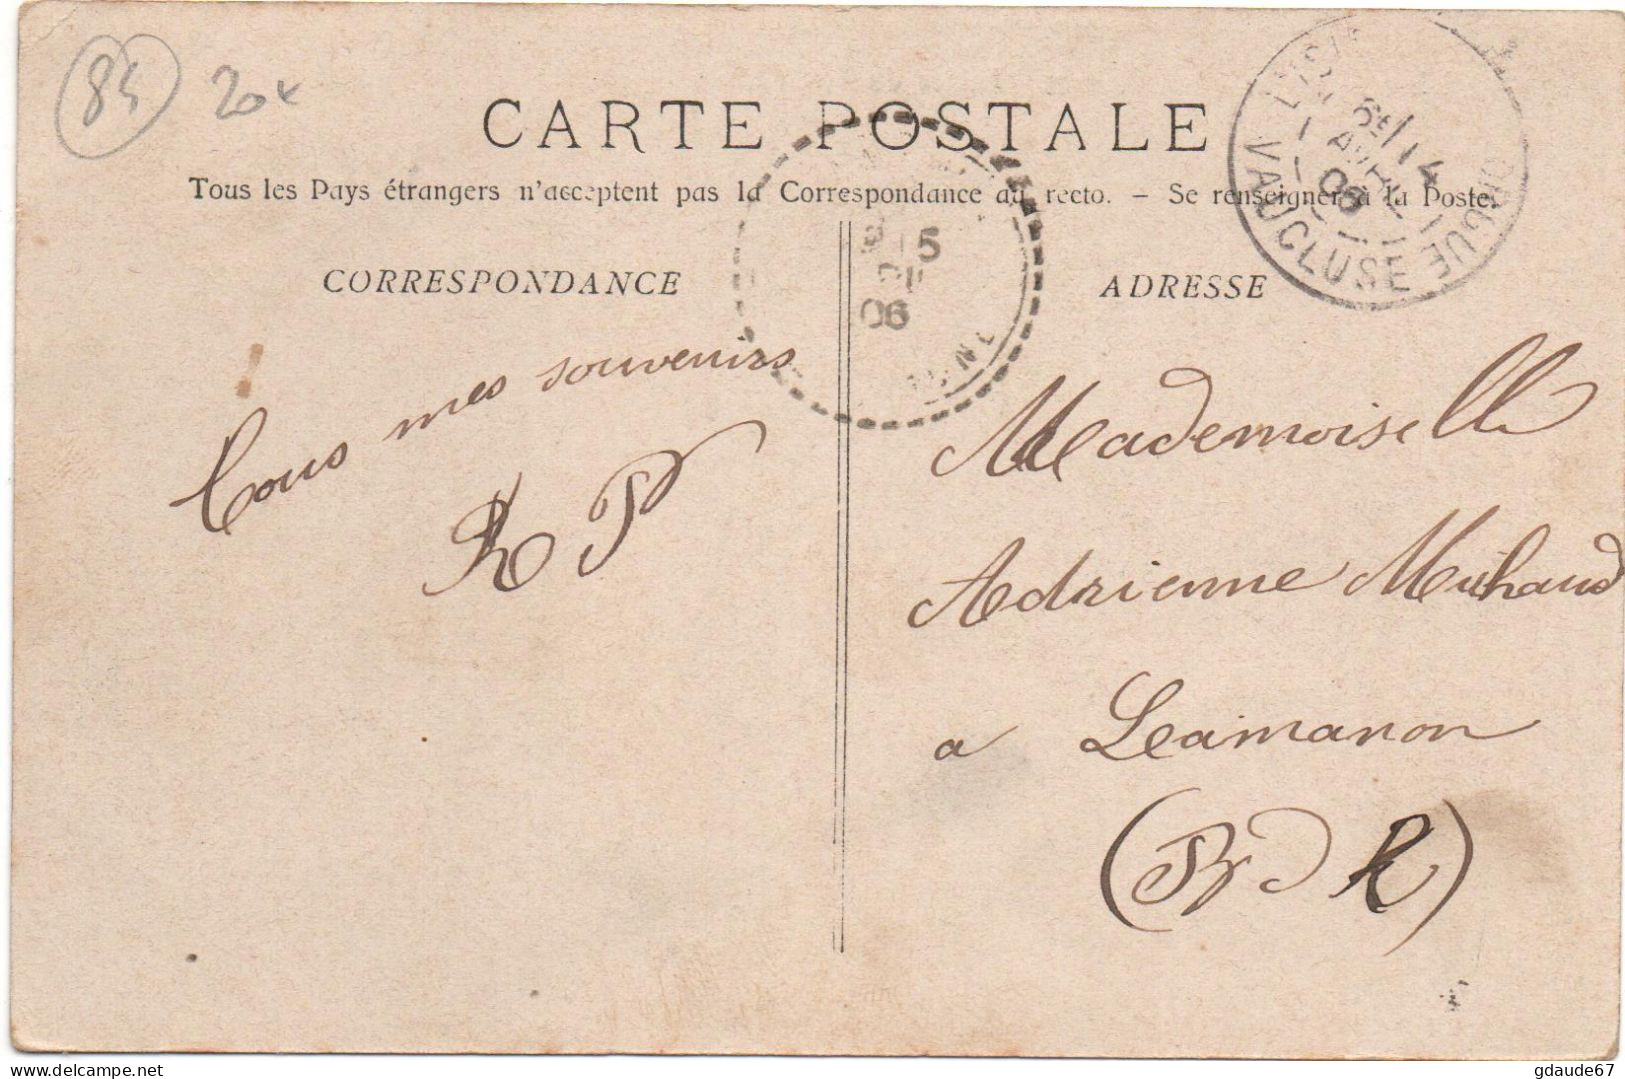 84
20
CARTE POSTALE
Tous les Pays étrangers n'acceptent pas la Correspondance au recto. – Se renseigner à la Poste.
CORRESPONDANCE
ADRESSE
VAUCLUSE
AVRIL
06
15
06
Tous mes souvenirs
R P
Mademoiselle
Adrienne Michaud
a Lamanon
(B D R)
delcampe.net
gdaude67